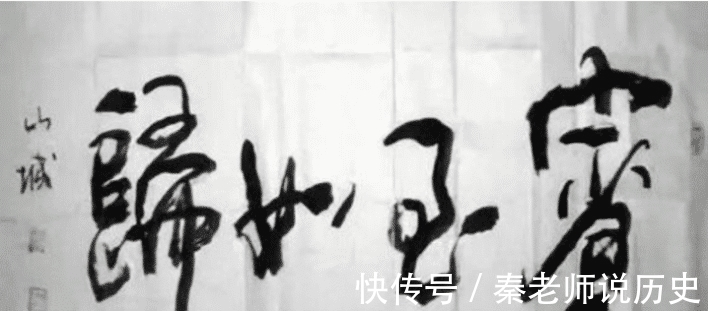 賓至如歸
山城
快传号 / 秦老师说历史